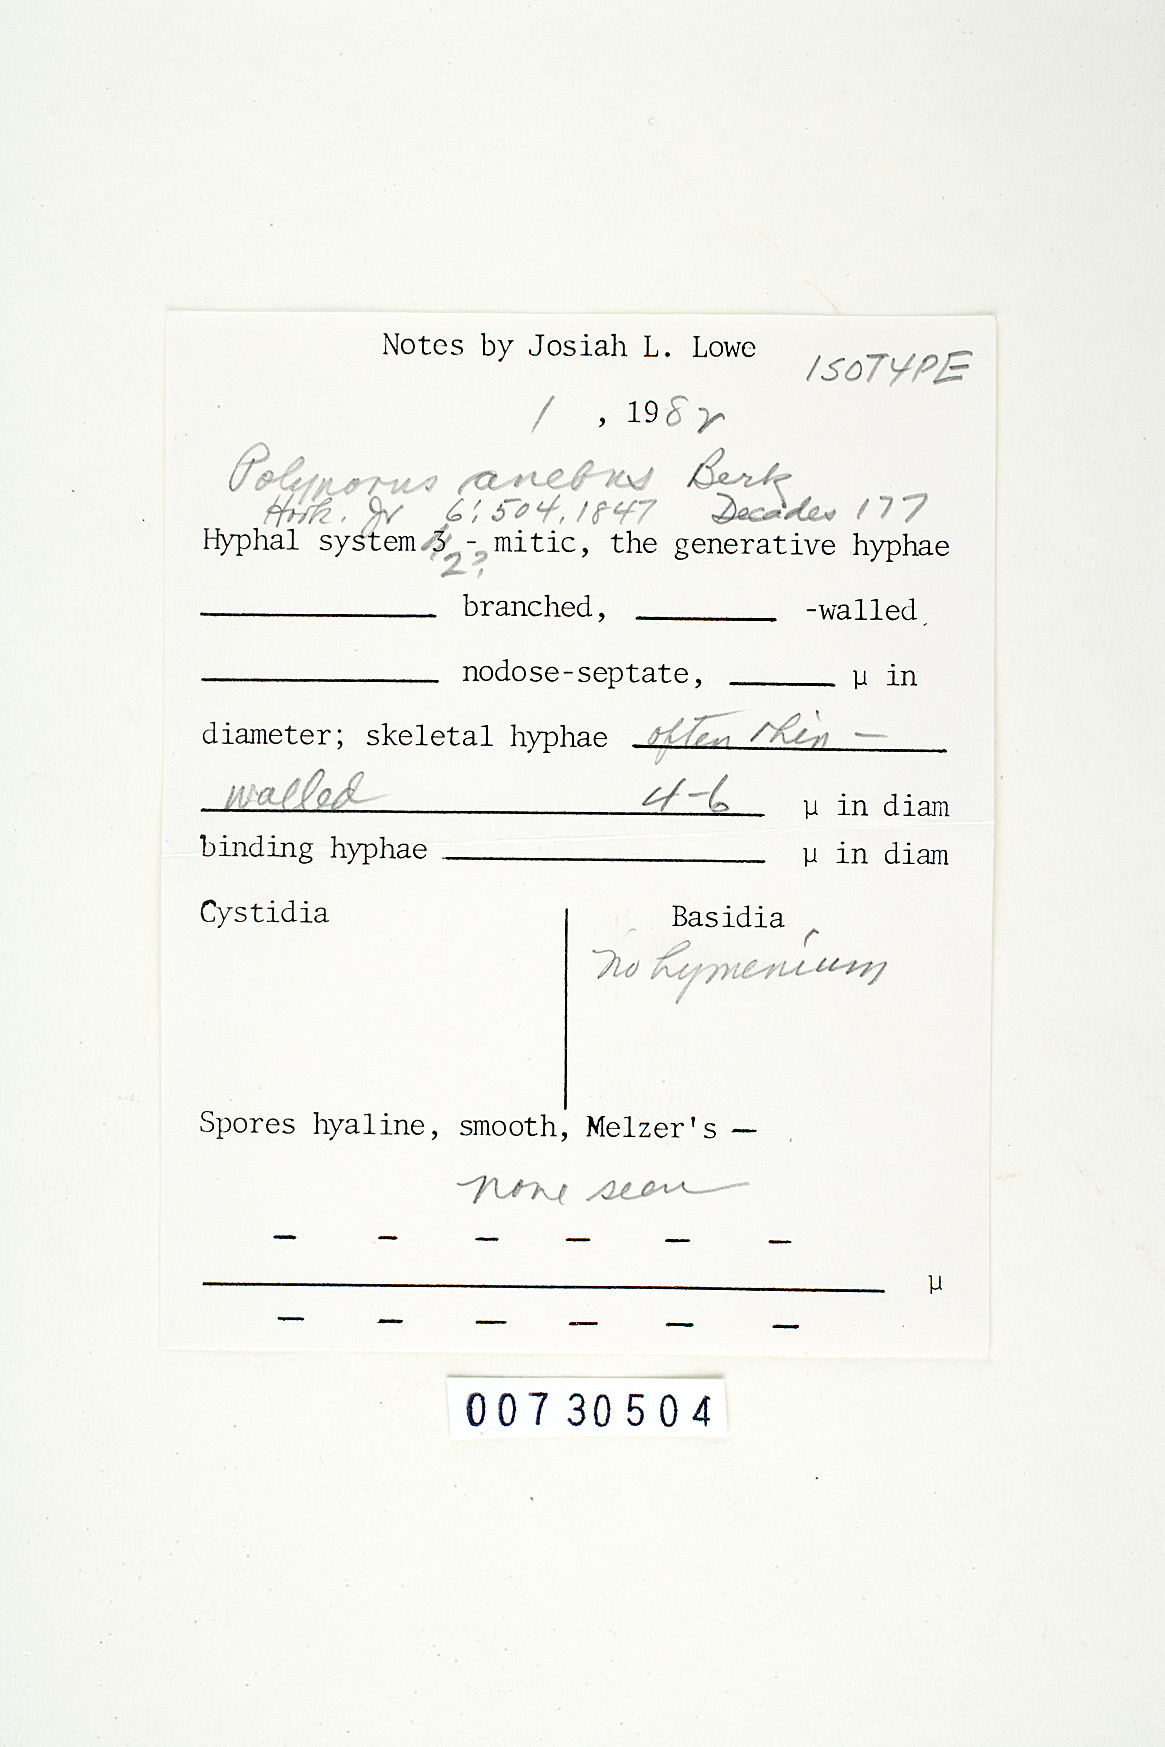 Notes by Josiah L. Lowe
ISOTYPE
1 , 1982
Polyporus anebus Berk
Hook. Jr 6: 504, 1847 Decades 177
Hyphal system 3 - mitic, the generative hyphae
2?
branched, -walled
nodose-septate, µ in
diameter; skeletal hyphae often thin —
walled 4-6 µ in diam
binding hyphae µ in diam
Cystidia
Basidia
no hymenium
Spores hyaline, smooth, Melzer's —
none seen
— — — — — —
µ
— — — — — —
00730504